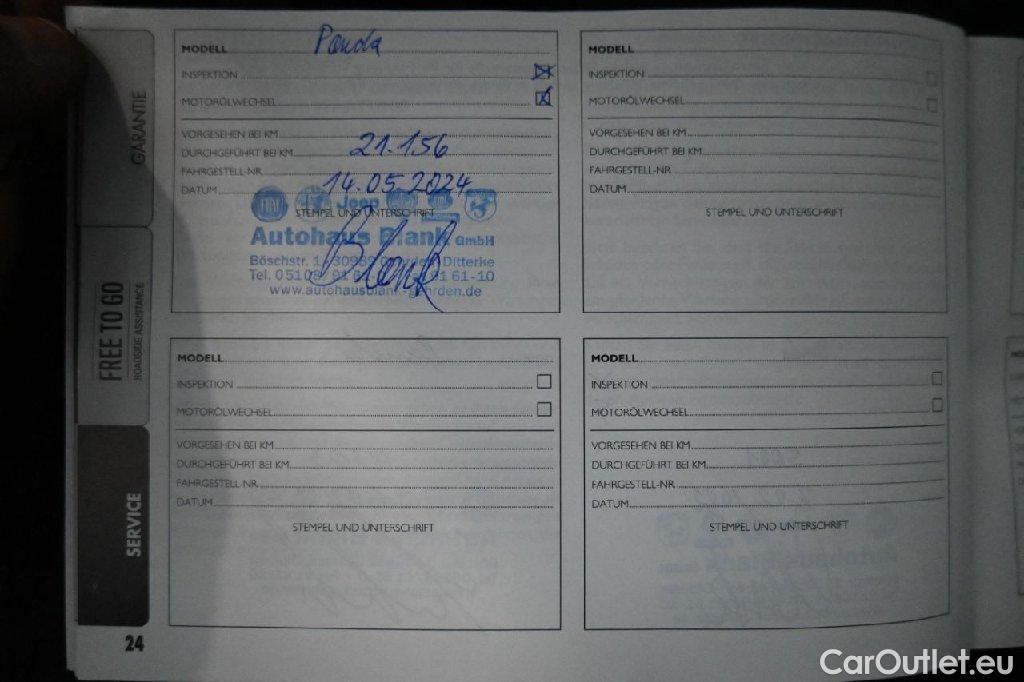 GARANTIE
FREE TO GO
ROADSIDE ASSISTANCE
SERVICE
MODELL Panda
INSPEKTION
MOTORÖLWECHSEL
VORGESEHEN BEI KM
DURCHGEFÜHRT BEI KM 21.156
FAHRGESTELL-NR.
DATUM 14.05.2024
STEMPEL UND UNTERSCHRIFT
FIAT Jeep
Autohaus Blank GmbH
Böschstr. Ditterke
Tel. 61-10
www.autohausblank-gehrden.de
Blank
MODELL
INSPEKTION
MOTORÖLWECHSEL
VORGESEHEN BEI KM
DURCHGEFÜHRT BEI KM
FAHRGESTELL-NR.
DATUM
STEMPEL UND UNTERSCHRIFT
MODELL
INSPEKTION
MOTORÖLWECHSEL
VORGESEHEN BEI KM
DURCHGEFÜHRT BEI KM
FAHRGESTELL-NR.
DATUM
STEMPEL UND UNTERSCHRIFT
MODELL
INSPEKTION
MOTORÖLWECHSEL
VORGESEHEN BEI KM
DURCHGEFÜHRT BEI KM
FAHRGESTELL-NR.
DATUM
STEMPEL UND UNTERSCHRIFT
24
CarOutlet.eu